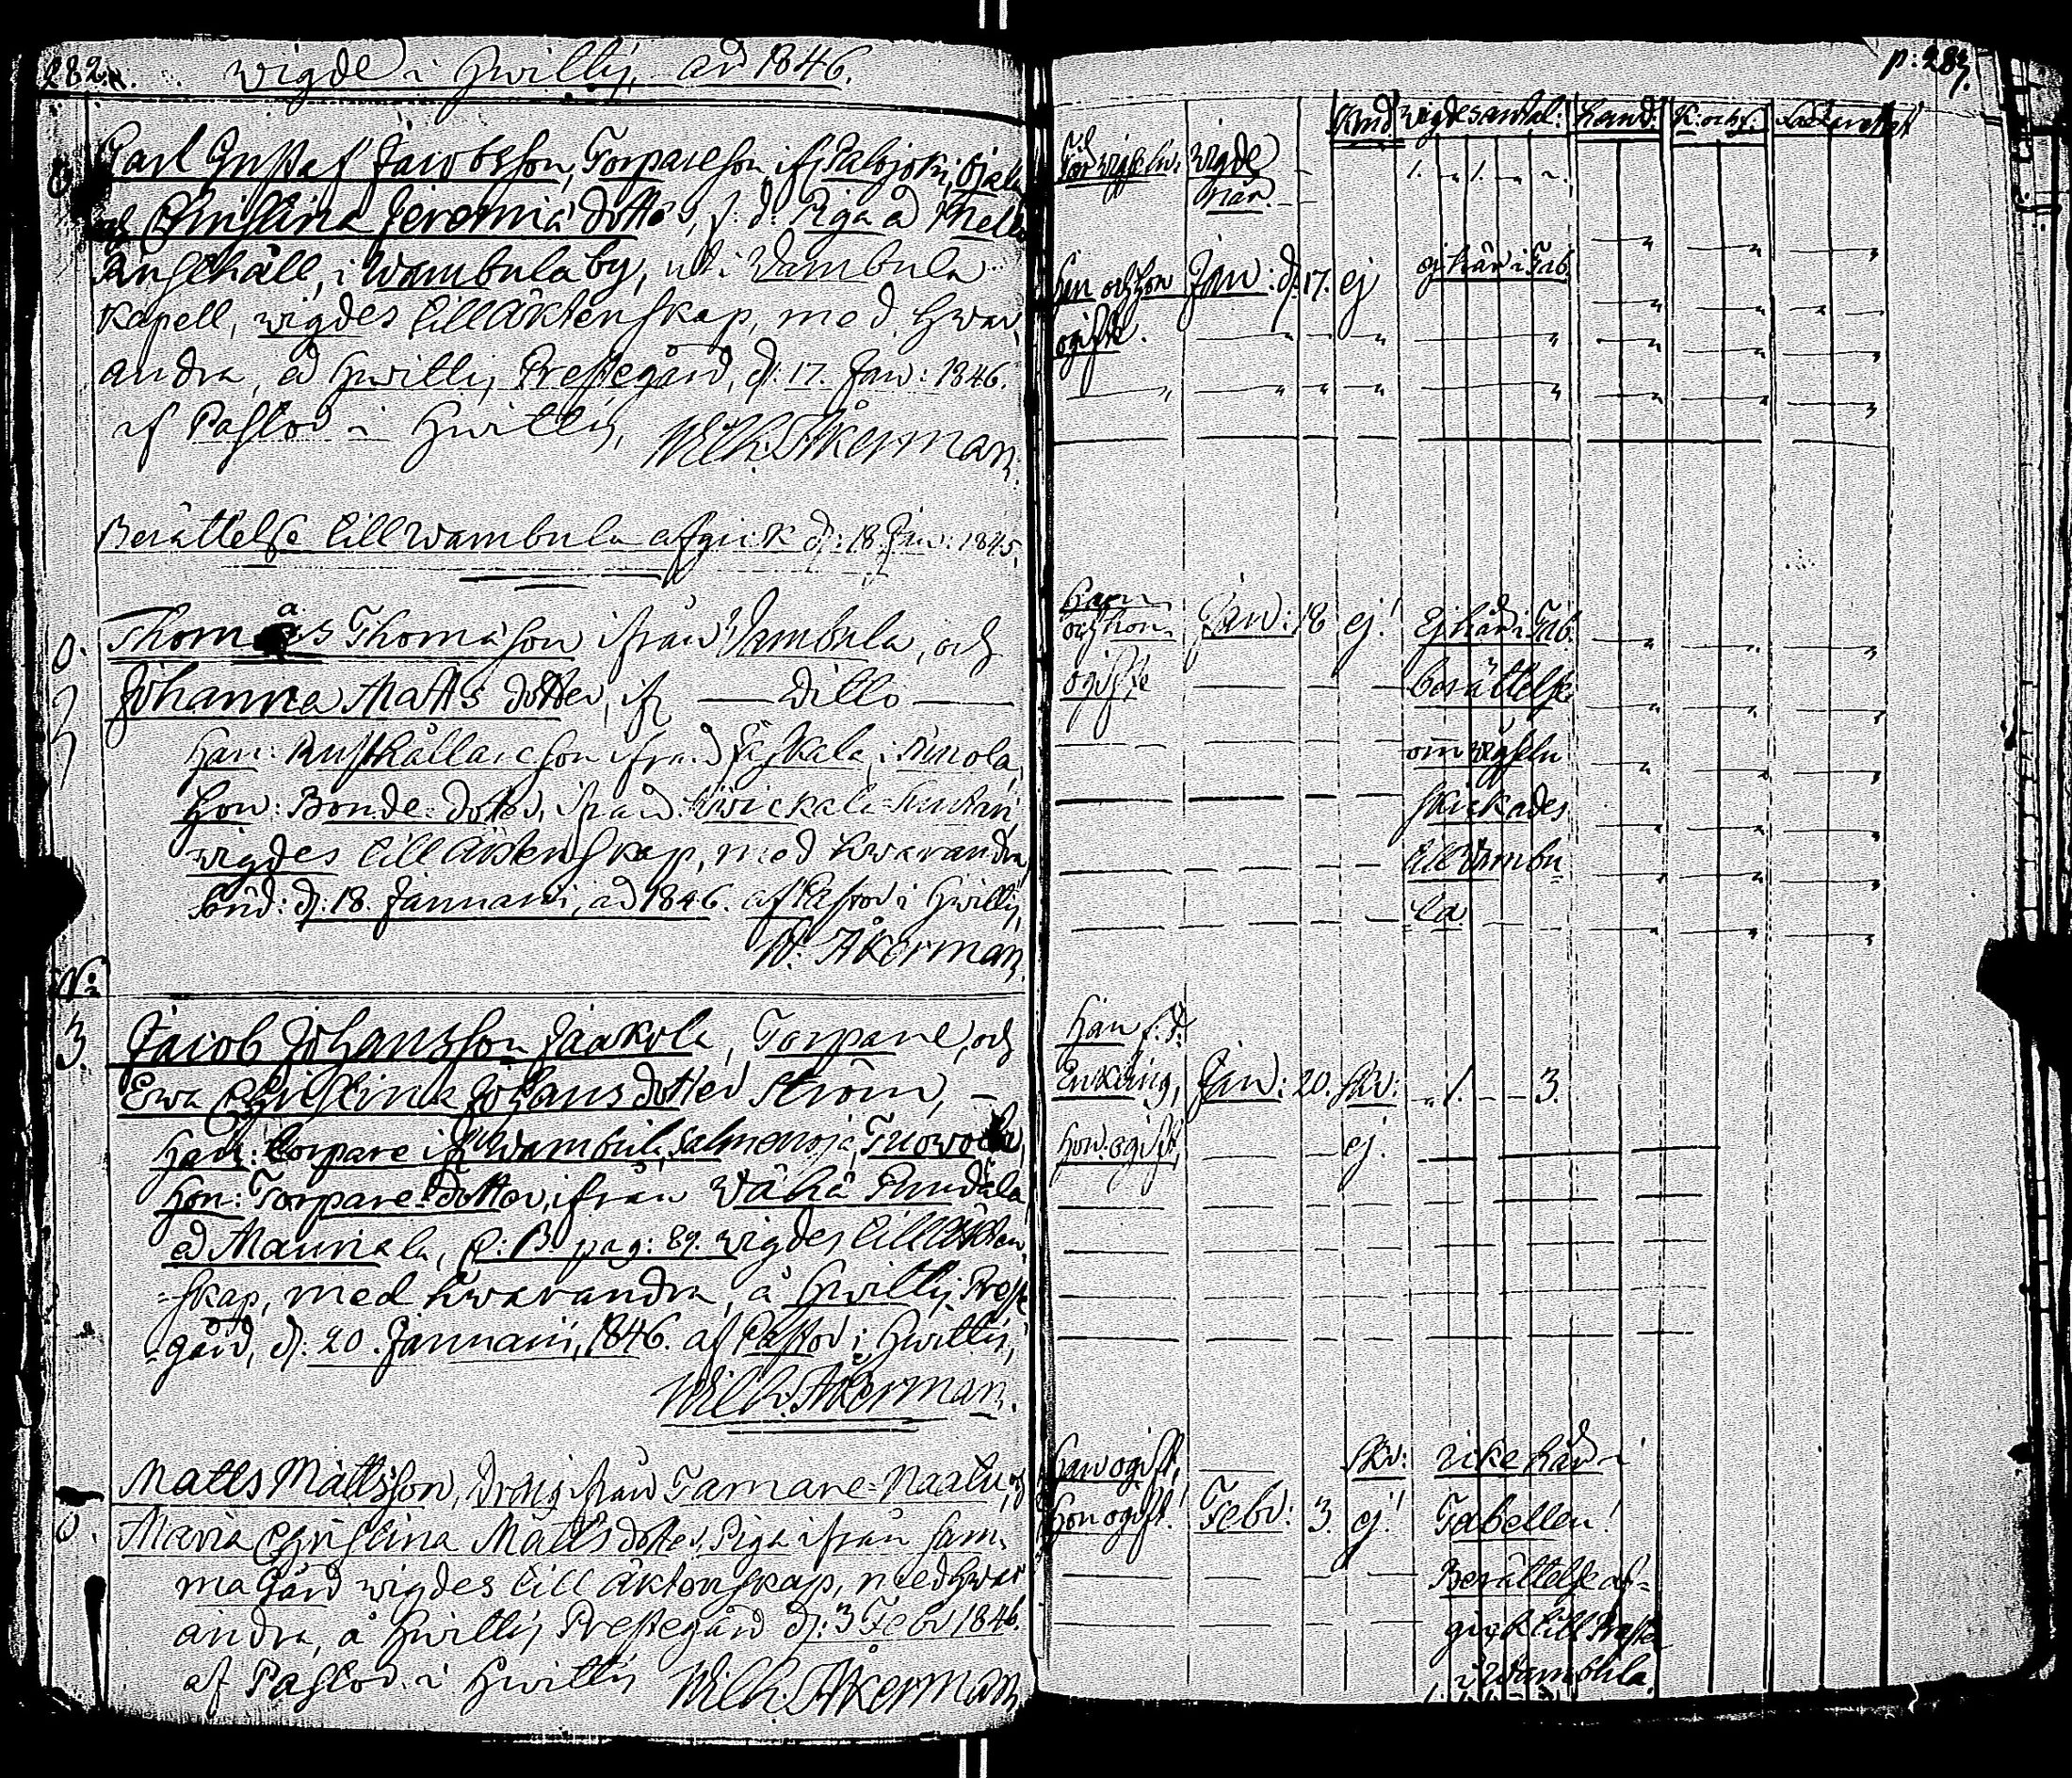 282.
wigde i Hwittis, åd 1846.
Carl Gustaf Jacobsson, Torpareson, ifr Palojoki, Ojala
och Christina Jeremiä dotter, f. d. Piga å Mella
i Wambula by, uti Wambula
Kapell, wigdes till Äktenskap, med hwar
andra, å Hwittis Prestegård, d: 17. Jan: 1846.
af Pastor i Hwittis, Wilh. Åkerman.
Berättelse till Wambula afgick d: 18 Jan: 1845,
0. Thomas Thomasson ifrån Wambula, och
Johanna Matts dotter, ifr — Ditto —
Han: Rusthållareson ifrån
Hon: Bonde-dotter, ifrån
wigdes till Äktenskap, med hwarandra
d: 18. Januari, åd 1846. af Pastor i Hwittis,
W. Åkerman
N:
3. Jacob Johansson Jaakola, Torpare, och
Ewa Christina Johans dotter Ström, —
Han: Torpare ifr Wambula, Salmenoja,
Hon: Torpare-dotter, ifrån Wähä
å Mauriala, C: B. pag: 89. wigdes till Äkten-
=skap, med hwarandra, å Hwittis Preste
=gård, d: 20. Januarii, 1846. af Pastor i Hwittis,
Wilh. Åkerman.
Matts Mattsson, Dräng ifrån Tamare-Naatu, och
0. Maria Christina Matts dotter, Piga ifrån sam-
ma Gård wigdes till Äktenskap, med hwar
andra, å Hwittis Prestegård d: 3 Febr 1846.
af Pastor i Hwittis Wilh. Åkerman
p: 283.
wigde
när.
wigdes antal:
1. „ 1. „ „
Han och hon Jan: d: 17. ej ej här i Tab.
ogifte.
Han
och hon Jan: 18 ej! Ej här i Tab.
ogifte berättelse
om wigseln
skickades
till Wambu
la
Han f. d.
Enkling, Jan: 20. skr: „ 1. – – 3.
Hon: ogift, ej.
Han ogift, skr: icke här i
Hon ogift! Febr: 3. ej! Tabellen!
Berättelse af-
gick till Prester
i Wambula.